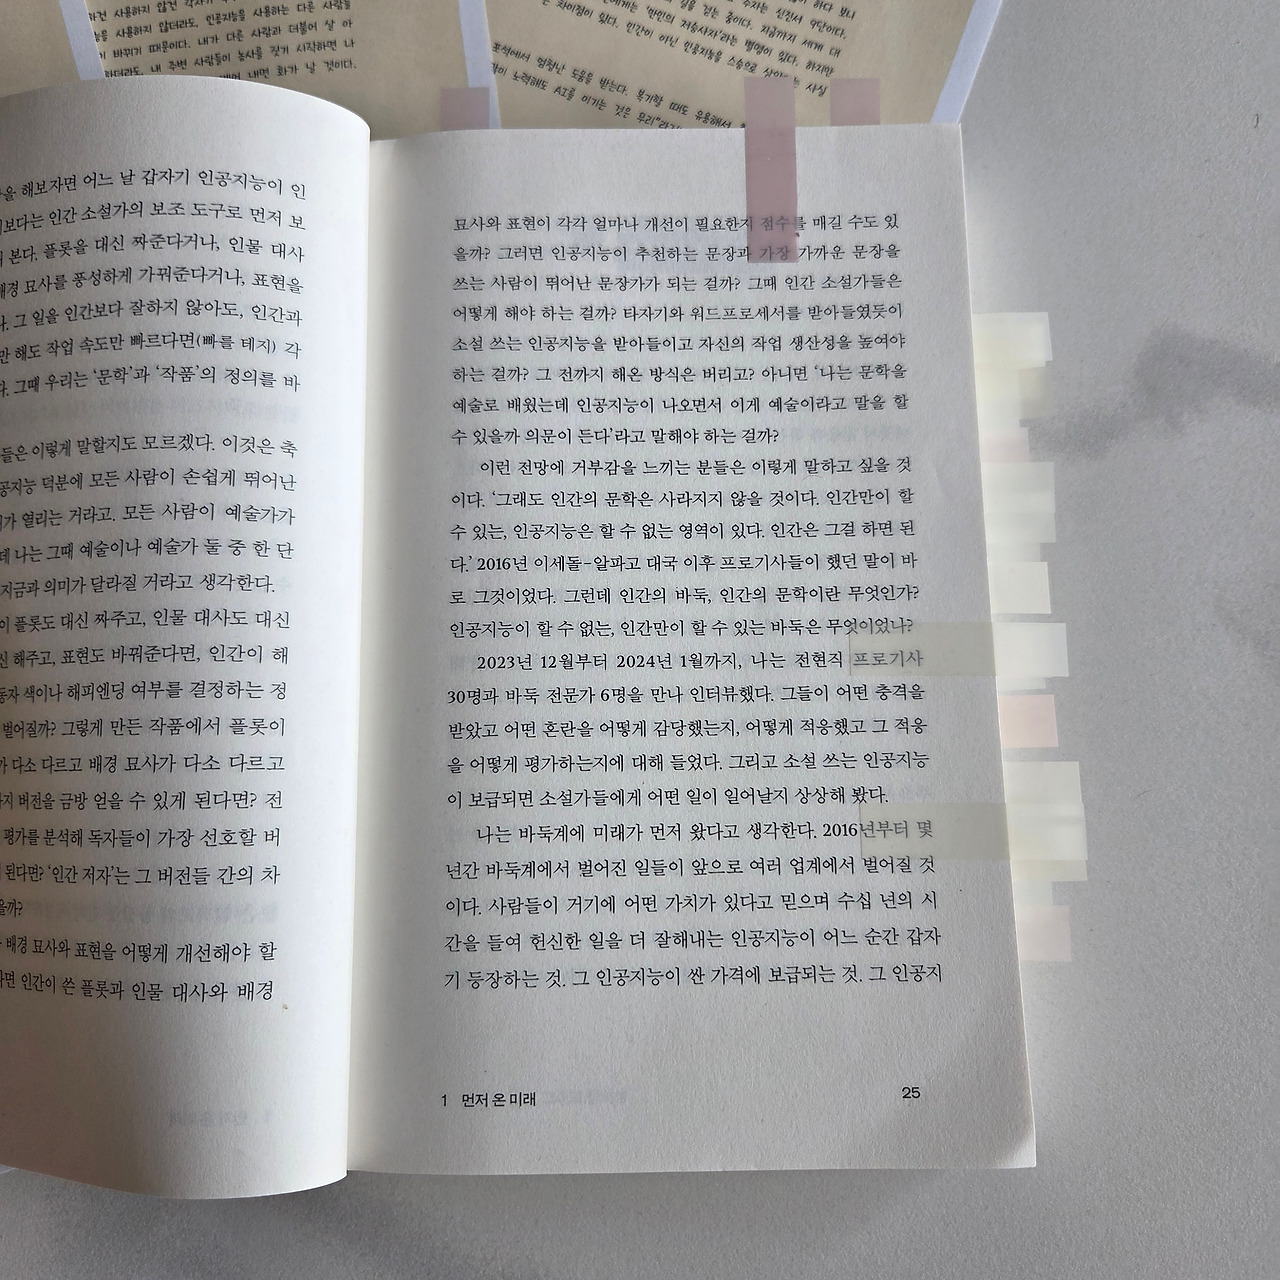 사용하지 않건 각자가
사용하지 않더라도, 인공지능을 사용하는 다른 사람들
바뀌기 때문이다. 내가 다른 사람과 더불어 살 아
하더라도, 내 주변 사람들이 농사를 짓기 시작하면 나
내면 화가 날 것이다.
'만인의 저승사자'라는 별명이 있다. 하지만
차이점이 있다. 인간이 아닌 인공지능을 스승으로 사실
엄청난 도움을 받는다. 복기할 때도 유용해서
노력해도 AI를 이기는 것은 무리"라
을 해보자면 어느 날 갑자기 인공지능이 인
보다는 인간 소설가의 보조 도구로 먼저 보
본다. 플롯을 대신 짜준다거나, 인물 대사
배경 묘사를 풍성하게 가꿔준다거나, 표현을
그 일을 인간보다 잘하지 않아도, 인간과
만 해도 작업 속도만 빠르다면(빠를 테지) 각
다. 그때 우리는 '문학'과 '작품'의 정의를 바
들은 이렇게 말할지도 모르겠다. 이것은 축
공지능 덕분에 모든 사람이 손쉽게 뛰어난
가 열리는 거라고. 모든 사람이 예술가가
데 나는 그때 예술이나 예술가 둘 중 한 단
지금과 의미가 달라질 거라고 생각한다.
이 플롯도 대신 짜주고, 인물 대사도 대신
신 해주고, 표현도 바꿔준다면, 인간이 해
동자 색이나 해피엔딩 여부를 결정하는 정
벌어질까? 그렇게 만든 작품에서 플롯이
가 다소 다르고 배경 묘사가 다소 다르고
지 버전을 금방 얻을 수 있게 된다면? 전
평가를 분석해 독자들이 가장 선호할 버
된다면? '인간 저자'는 그 버전들 간의 차
을까?
배경 묘사와 표현을 어떻게 개선해야 할
면 인간이 쓴 플롯과 인물 대사와 배경
묘사와 표현이 각각 얼마나 개선이 필요한지 점수를 매길 수도 있
을까? 그러면 인공지능이 추천하는 문장과 가장 가까운 문장을
쓰는 사람이 뛰어난 문장가가 되는 걸까? 그때 인간 소설가들은
어떻게 해야 하는 걸까? 타자기와 워드프로세서를 받아들였듯이
소설 쓰는 인공지능을 받아들이고 자신의 작업 생산성을 높여야
하는 걸까? 그 전까지 해온 방식은 버리고? 아니면 '나는 문학을
예술로 배웠는데 인공지능이 나오면서 이게 예술이라고 말을 할
수 있을까 의문이 든다'라고 말해야 하는 걸까?
이런 전망에 거부감을 느끼는 분들은 이렇게 말하고 싶을 것
이다. '그래도 인간의 문학은 사라지지 않을 것이다. 인간만이 할
수 있는, 인공지능은 할 수 없는 영역이 있다. 인간은 그걸 하면 된
다.' 2016년 이세돌-알파고 대국 이후 프로기사들이 했던 말이 바
로 그것이었다. 그런데 인간의 바둑, 인간의 문학이란 무엇인가?
인공지능이 할 수 없는, 인간만이 할 수 있는 바둑은 무엇이었나?
2023년 12월부터 2024년 1월까지, 나는 전현직 프로기사
30명과 바둑 전문가 6명을 만나 인터뷰했다. 그들이 어떤 충격을
받았고 어떤 혼란을 어떻게 감당했는지, 어떻게 적응했고 그 적응
을 어떻게 평가하는지에 대해 들었다. 그리고 소설 쓰는 인공지능
이 보급되면 소설가들에게 어떤 일이 일어날지 상상해 봤다.
나는 바둑계에 미래가 먼저 왔다고 생각한다. 2016년부터 몇
년간 바둑계에서 벌어진 일들이 앞으로 여러 업계에서 벌어질 것
이다. 사람들이 거기에 어떤 가치가 있다고 믿으며 수십 년의 시
간을 들여 헌신한 일을 더 잘해내는 인공지능이 어느 순간 갑자
기 등장하는 것. 그 인공지능이 싼 가격에 보급되는 것. 그 인공지
1 먼저 온 미래
25